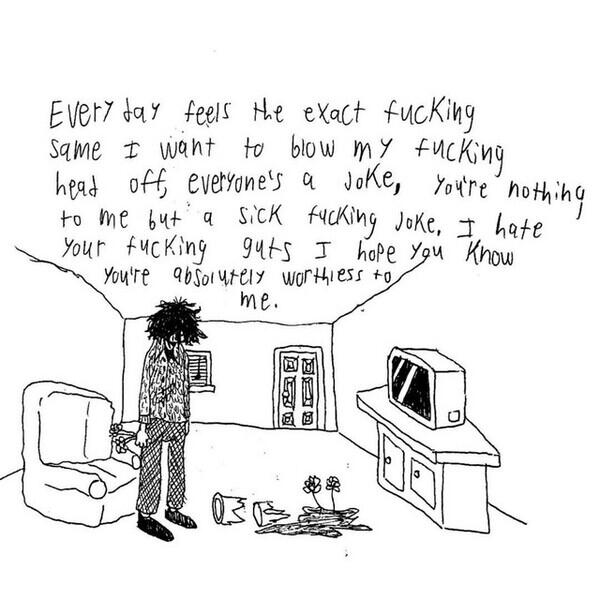 Every day feels the exact fucking
same I want to blow my fucking
head off, everyone's a Joke, You're nothing
to me but a sick fucking Joke. I hate
Your fucking guts I hope You Know
You're absolutely worthless to
me.